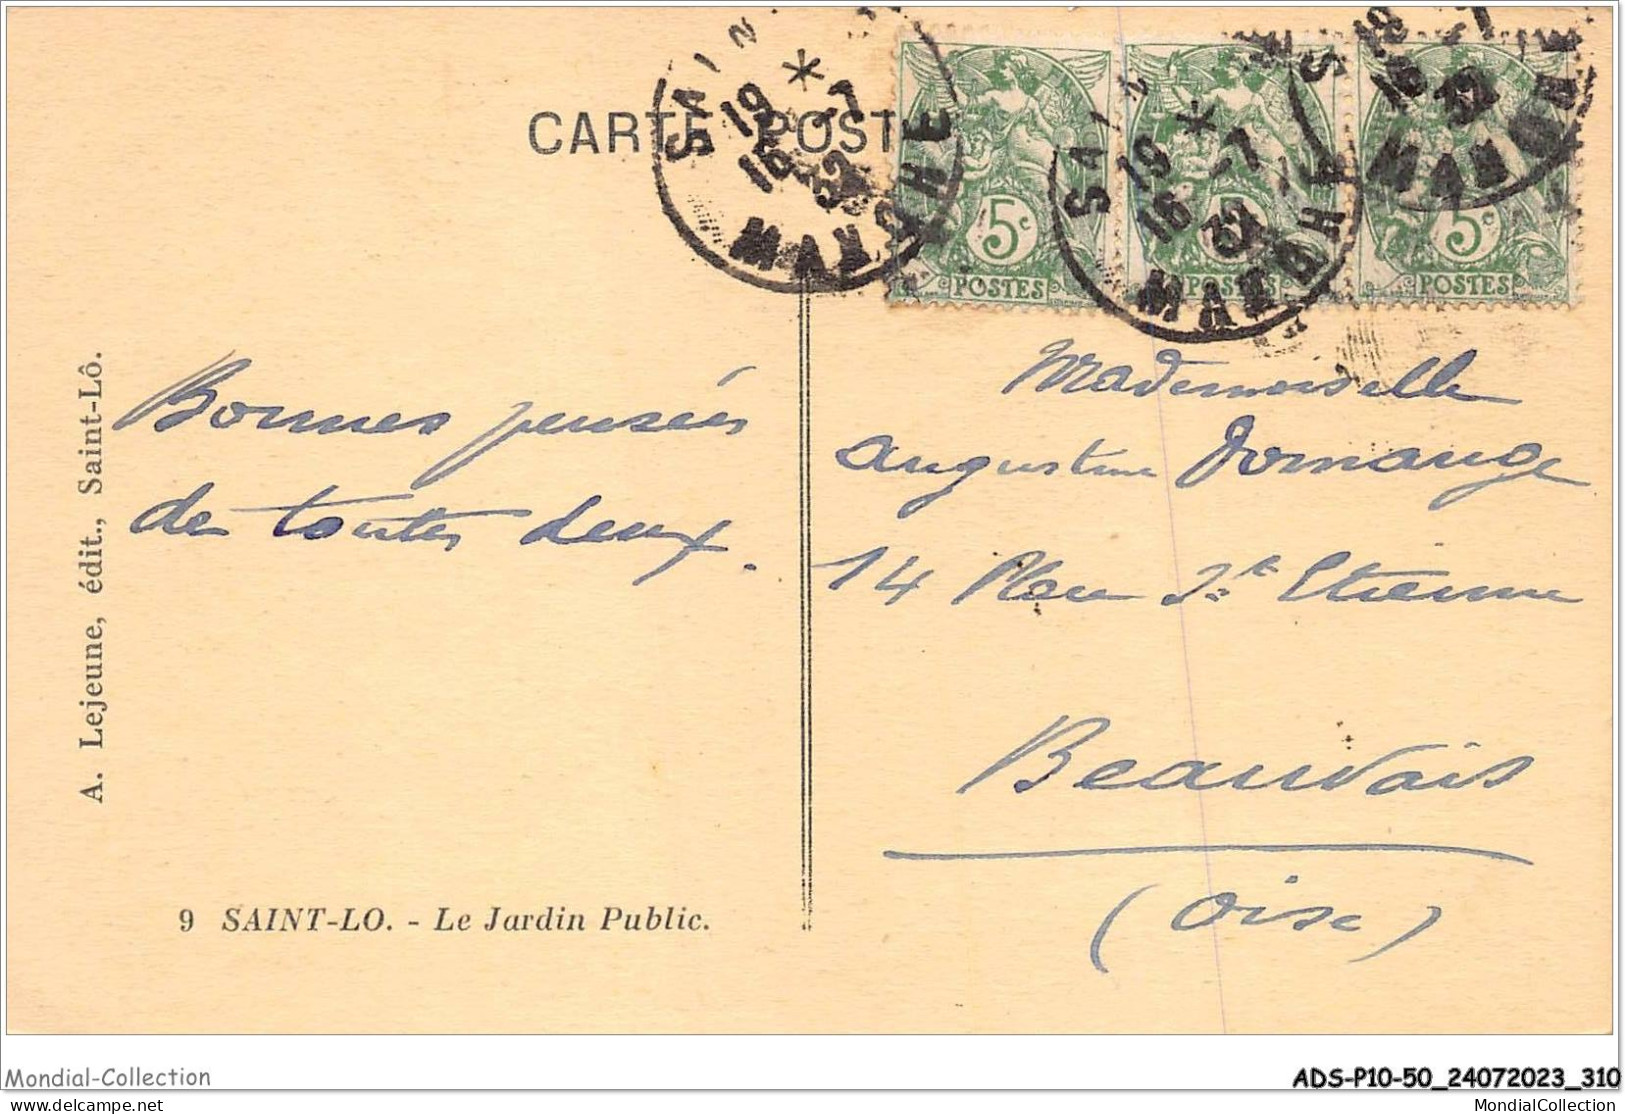 CARTE POSTALE
SAINT
MANCHE
19 * -7
16 32
SAINT
MANCHE
19 * -7
16 32
19 -7
16 32
MANCHE
5c
POSTES
5c
POSTES
5c
POSTES
A. Lejeune, édit., Saint-Lô.
Bonnes pensées
de toutes deux.
Mademoiselle
Augustine Domange
14 St Etienne
Beauvais
(Oise)
9 SAINT-LO. - Le Jardin Public.
Mondial-Collection
delcampe.net
ADS-P10-50_24072023_310
MondialCollection